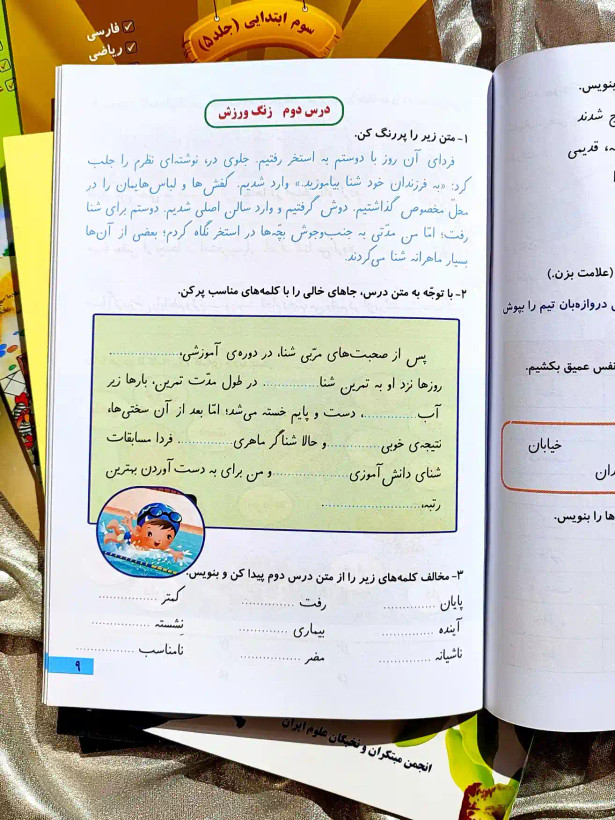 سوم ابتدایی (جلد ۵)
فارسی
ریاضی
درس دوم زنگ ورزش
۱- متن زیر را پررنگ کن.
فردای آن روز با دوستم به استخر رفتیم. جلوی در، نوشته‌ای نظرم را جلب
کرد: «به فرزندان خود شنا بیاموزید.» وارد شدیم. کفش‌ها و لباس‌هایمان را در
محلّ مخصوص گذاشتیم. دوش گرفتیم و وارد سالن اصلی شدیم. دوستم برای شنا
رفت؛ امّا من مدّتی به جنب‌وجوش بچّه‌ها در استخر نگاه کردم؛ بعضی از آن‌ها
بسیار ماهرانه شنا می‌کردند.
۲- با توجّه به متن درس، جاهای خالی را با کلمه‌های مناسب پر کن.
پس از صحبت‌های مربّی شنا، در دوره‌ی آموزشی، ....................
روزها نزد او به تمرین شنا .............. در طول مدّت تمرین، بارها زیر
آب ..............، دست و پایم خسته می‌شد؛ امّا بعد از آن سختی‌ها،
نتیجه‌ی خوبی .............. و حالا شناگر ماهری .............. فردا مسابقات
شنای دانش‌آموزی .................... و من برای به دست آوردن بهترین
رتبه، .........................
۳- مخالف کلمه‌های زیر را از متن درس دوم پیدا کن و بنویس.
پایان .............. رفت .............. کمتر ..............
آینده .............. بیماری .............. نِشسته ..............
ناشیانه .............. مضر .............. نامناسب ..............
۹
بنویس.
ج شدند
ه، قدیمی
(علامت بزن.)
دروازه‌بان تیم را بپوش
نفس عمیق بکشیم.
خیابان
ران
ها را بنویس.
انجمن مبتکران و نخبگان علوم ایران